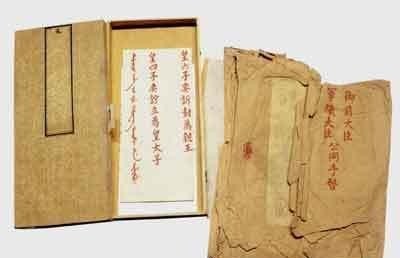 御前大臣
軍機大臣公同手啓
皇六子奕訢封為親王
皇四子奕詝立為皇太子